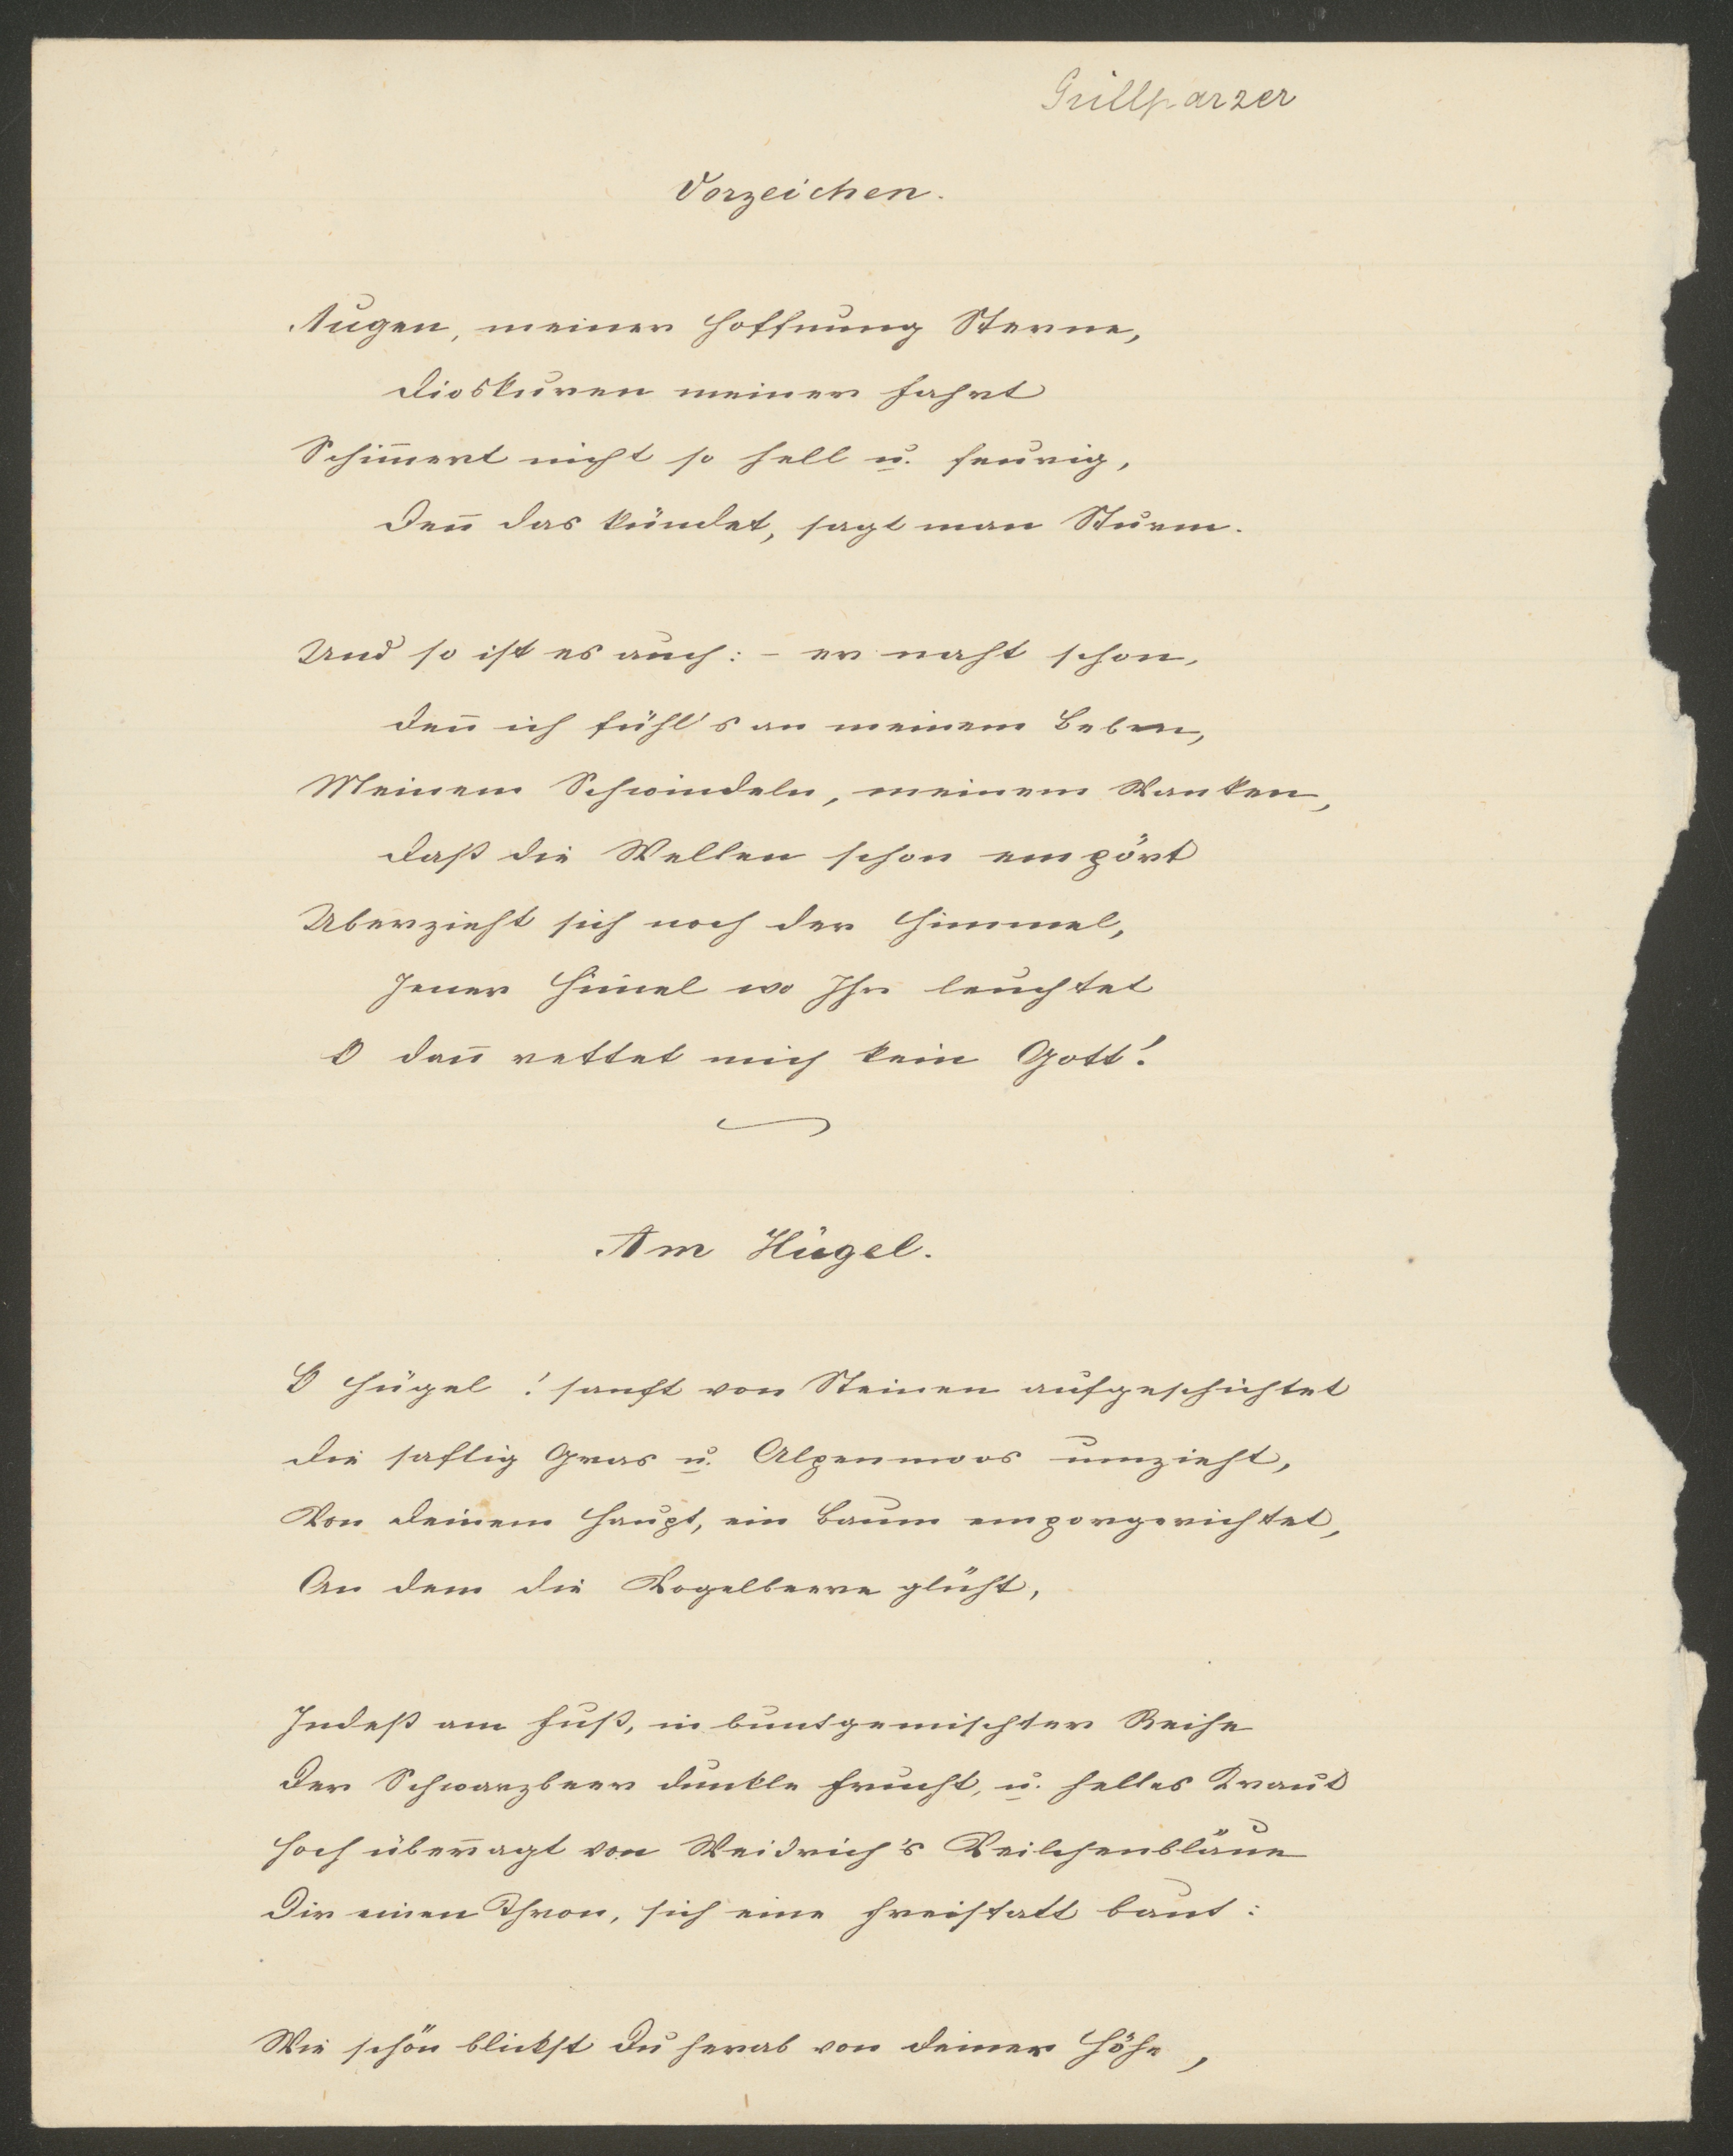 Grillparzer
Vorzeichen.
Augen, meiner Hoffnung Sterne,
Dioskuren meiner Fahrt
Schim̅ert nicht so hell u. feurig,
Den̅ das kündet, sagt man Sturm.
Und so ist es auch: – er naht schon,
Den̅ ich fühl's an meinem Beben,
Meinem Schwindeln, meinem Wanken,
Daß die Wellen schon empört
Uberzieht sich noch der Himmel,
Jener Him̅el wo Ihr leuchtet
O dan̅ rettet mich kein Gott!
Am Hügel.
O Hügel! sanft von Steinen aufgeschichtet
Die saftig Gras u. Alpenmoos umzieht,
Von deinem Haupt, ein Baum emporgerichtet,
An dem die Vogelbeere glüht,
Indeß am Fuß, in buntgemischter Reihe
Der Schwarzbeer dunkle Frucht, u. helles Kraut
Hoch über̅agt von Weidrich's Veilchenbläue
Dir einen Thron, sich eine Freistatt baut:
Wie schön blickst Du herab von deiner Höhe,